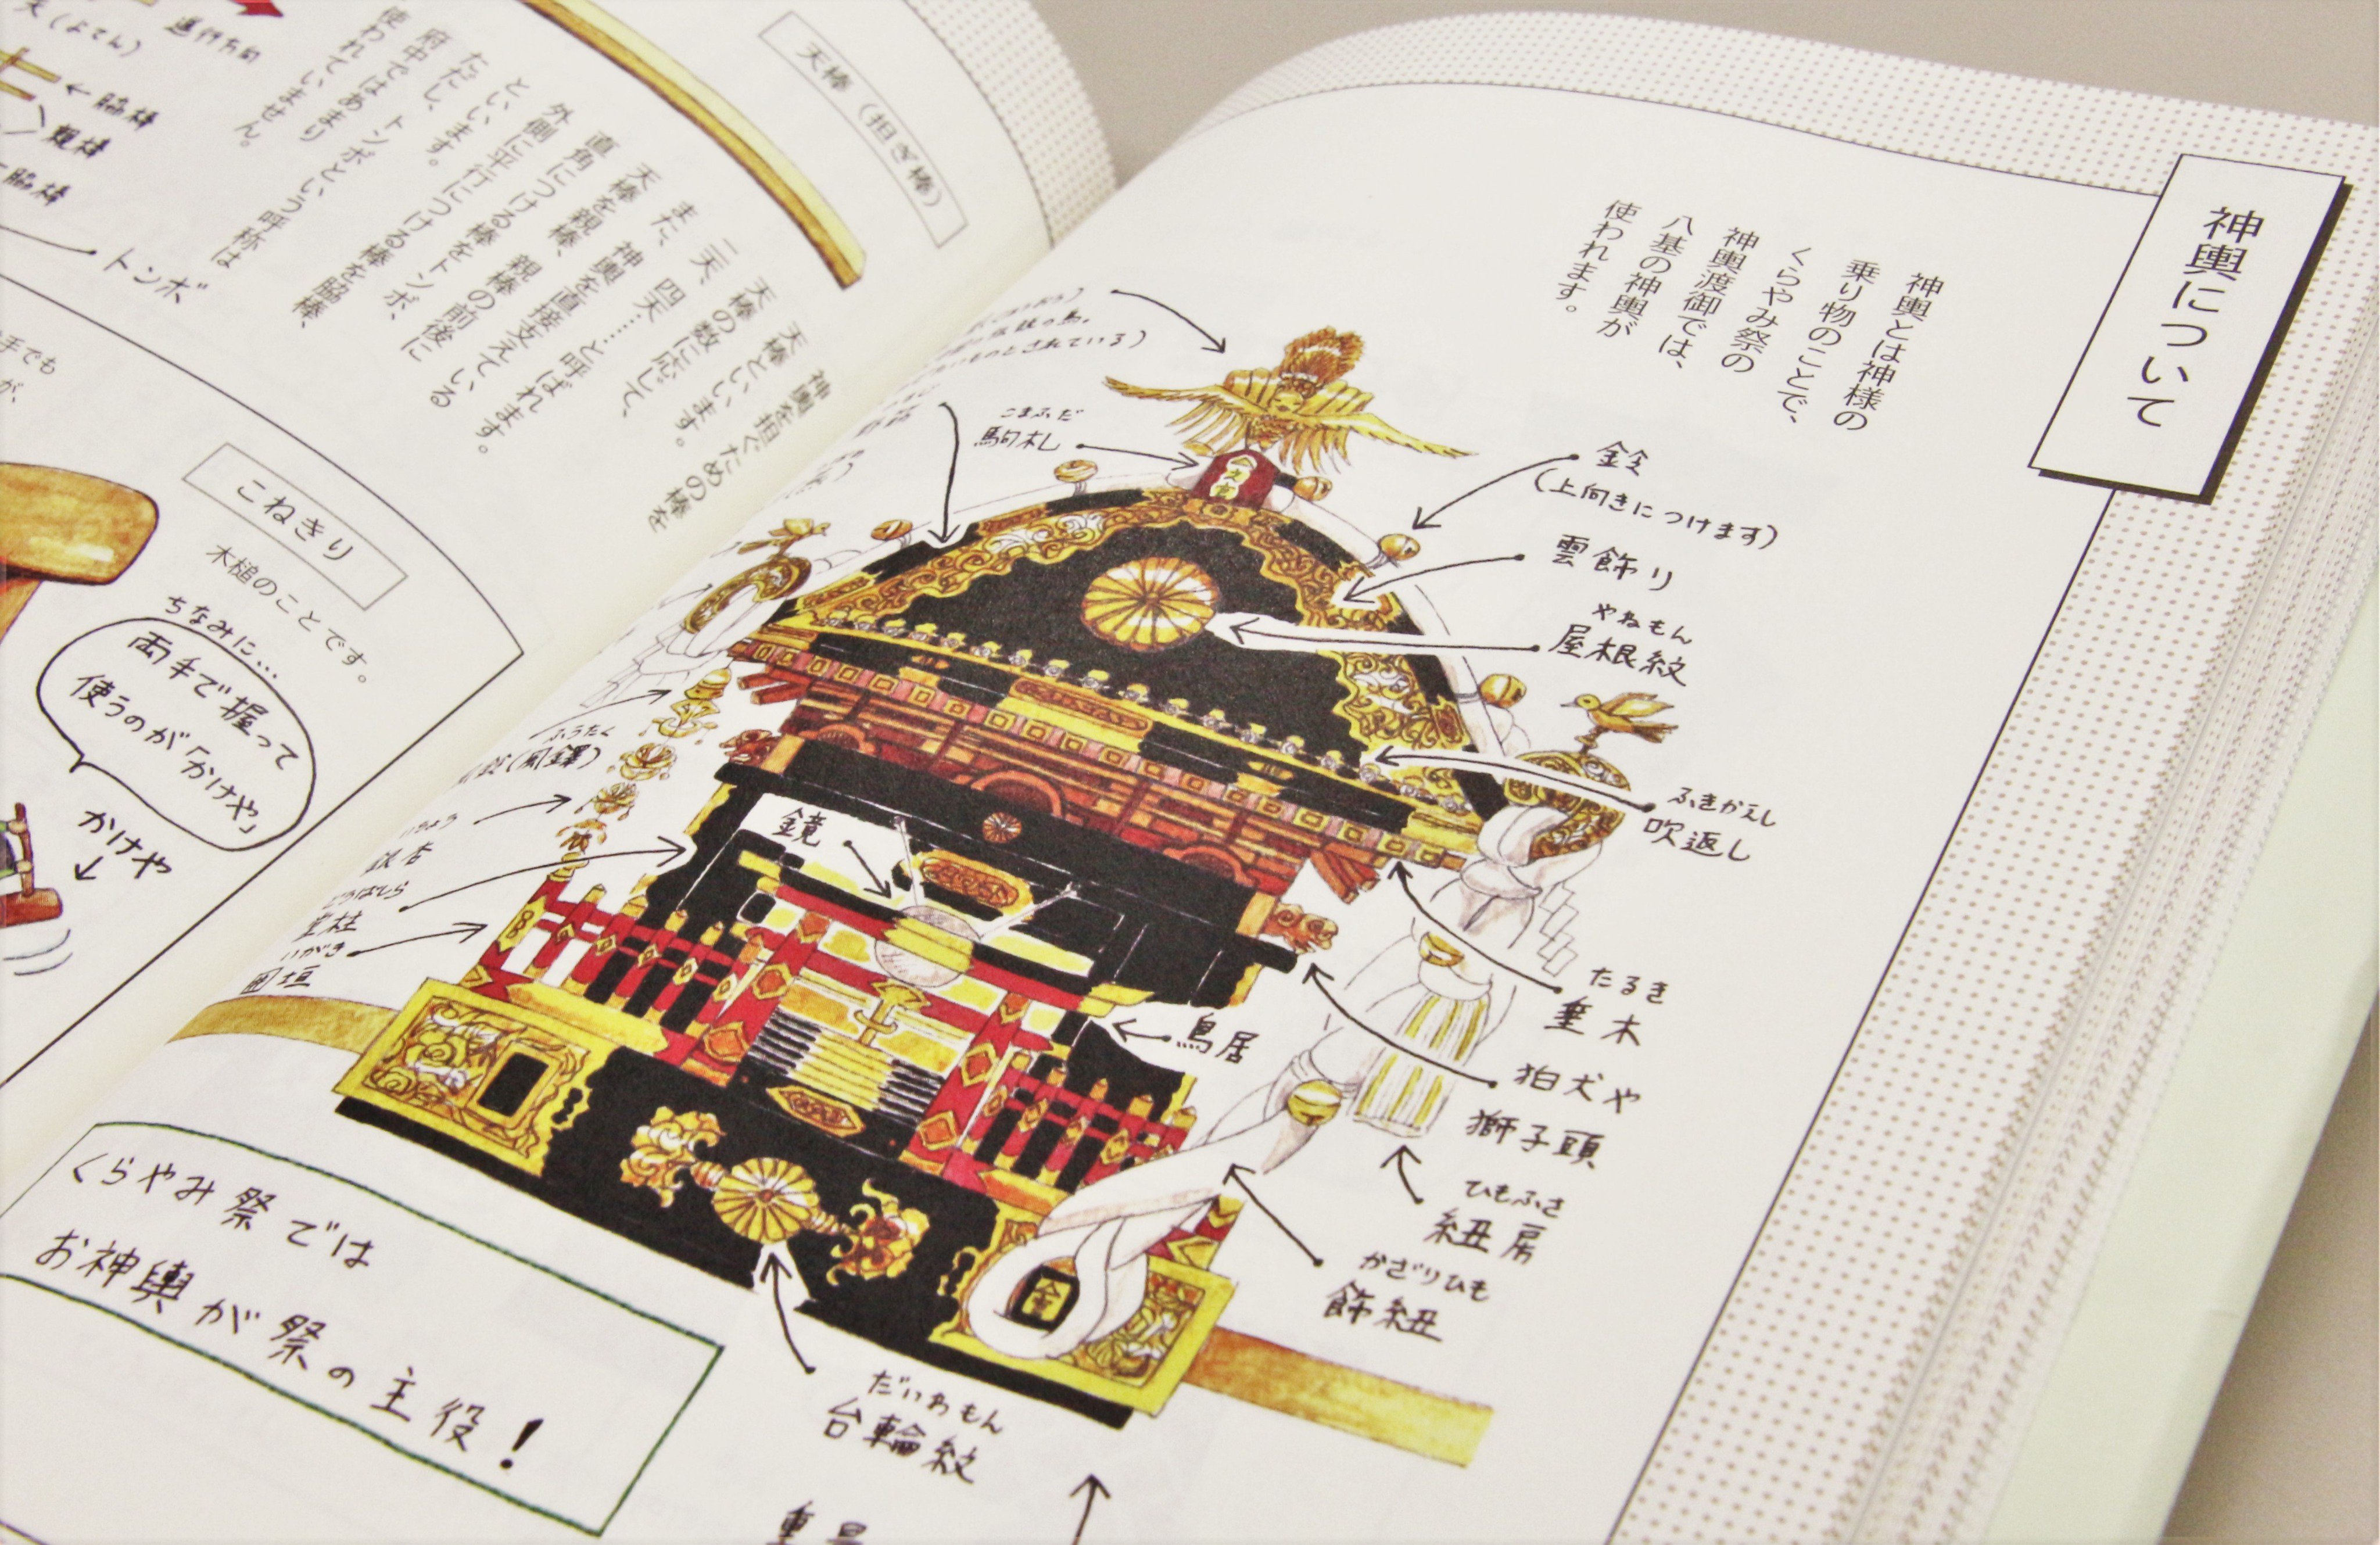 神輿について
神輿とは神様の
乗り物のことで、
くらやみ祭の
神輿渡御では、
八基の神輿が
使われます。
鈴
(上向きにつけます)
雲飾り
やねもん
屋根紋
ふきかえし
吹返し
たるき
垂木
狛犬や
獅子頭
ひもふさ
紐房
かざりひも
飾紐
だいわもん
台輪紋
鳥居
鏡
こまふだ
駒札
とされている)
ふうたく
(風鐸)
いがき
囲垣
くらやみ祭では
お神輿が祭の主役!
天棒(担ぎ棒)
神輿を担ぐための棒を
天棒といいます。
天棒の数に応じて、
二天、四天……と呼ばれます。
また、神輿を直接支えている
天棒を親棒、親棒の前後に
直角につける棒をトンボ、
外側に平行につける棒を脇棒、
といいます。
ただし、トンボという呼称は
府中ではあまり
使われていません。
進行方向
(よてん)
脇棒
親棒
脇棒
トンボ
こねきり
木槌のことです。
ちなみに…
両手で握って
使うのが「かけや」
かけや
手でも
が、